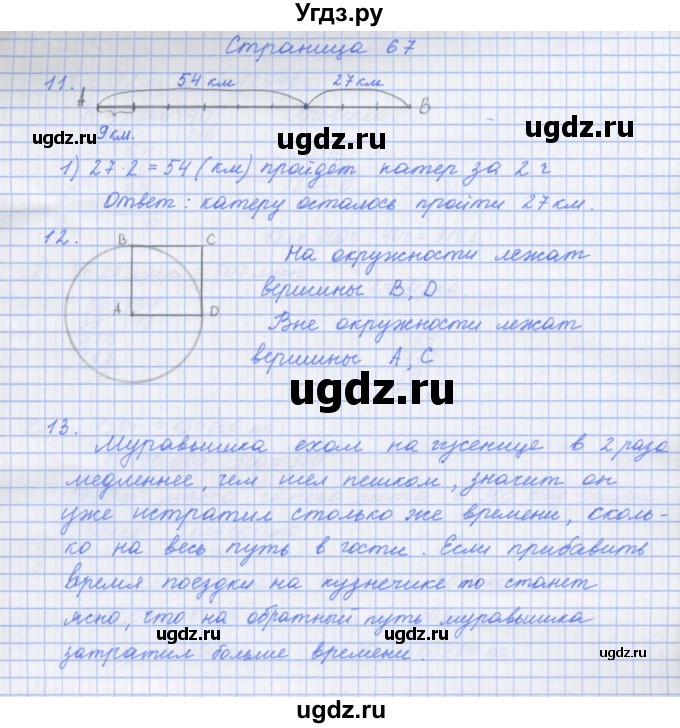 Угдз.ру
Страница 67
11. А 54 км 27 км В
9 км.
ugdz.ru ugdz.ru ugdz.ru
1) 27 · 2 = 54 (км) пройдет катер за 2 ч
Ответ: катеру осталось пройти 27 км.
12. В С
На окружности лежат
вершины В, D
А D
Вне окружности лежат
вершины А, С
ugdz.ru
13.
Муравьишка ехал на гусенице в 2 раза
медленнее, чем шел пешком, значит он
уже истратил столько же времени, сколь-
ко на весь путь в гости. Если прибавить
время поездки на кузнечике то станет
ясно, что на обратный путь муравьишка
ugdz.ru ugdz.ru
затратил больше времени.
ugdz.ru
ugdz.ru